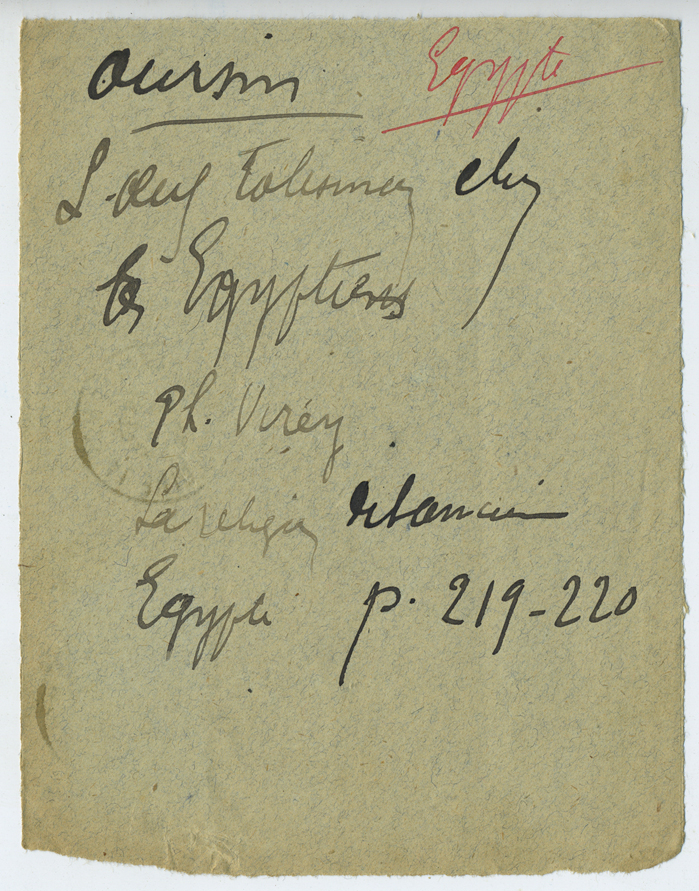 oursin Egypte
L'œuf talisman chez
les Egyptiens
Ph. Virey
La religion de l'ancienne
Egypte p. 219-220